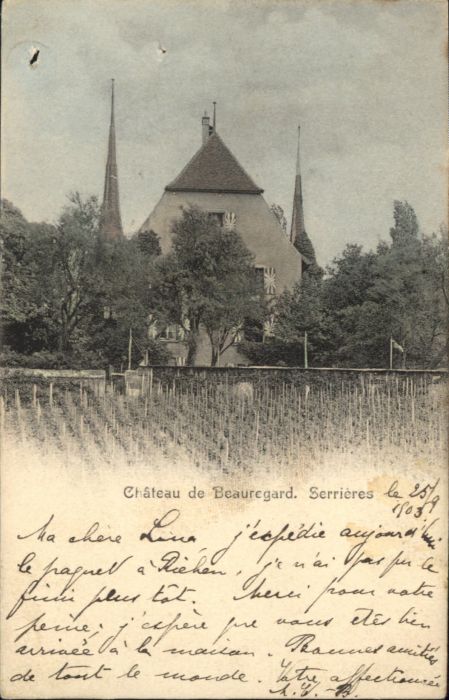 Château de Beauregard. Serrières le 25/9
1903
Ma chère Lina, j'expédie aujourd'hui
le paquet à Riehen, je n'ai pas pu le
finir plus tôt. Merci pour votre
peine; j'espère que vous êtes bien
arrivée à la maison. Bonnes amitiés
de tout le monde. Votre affectionnée